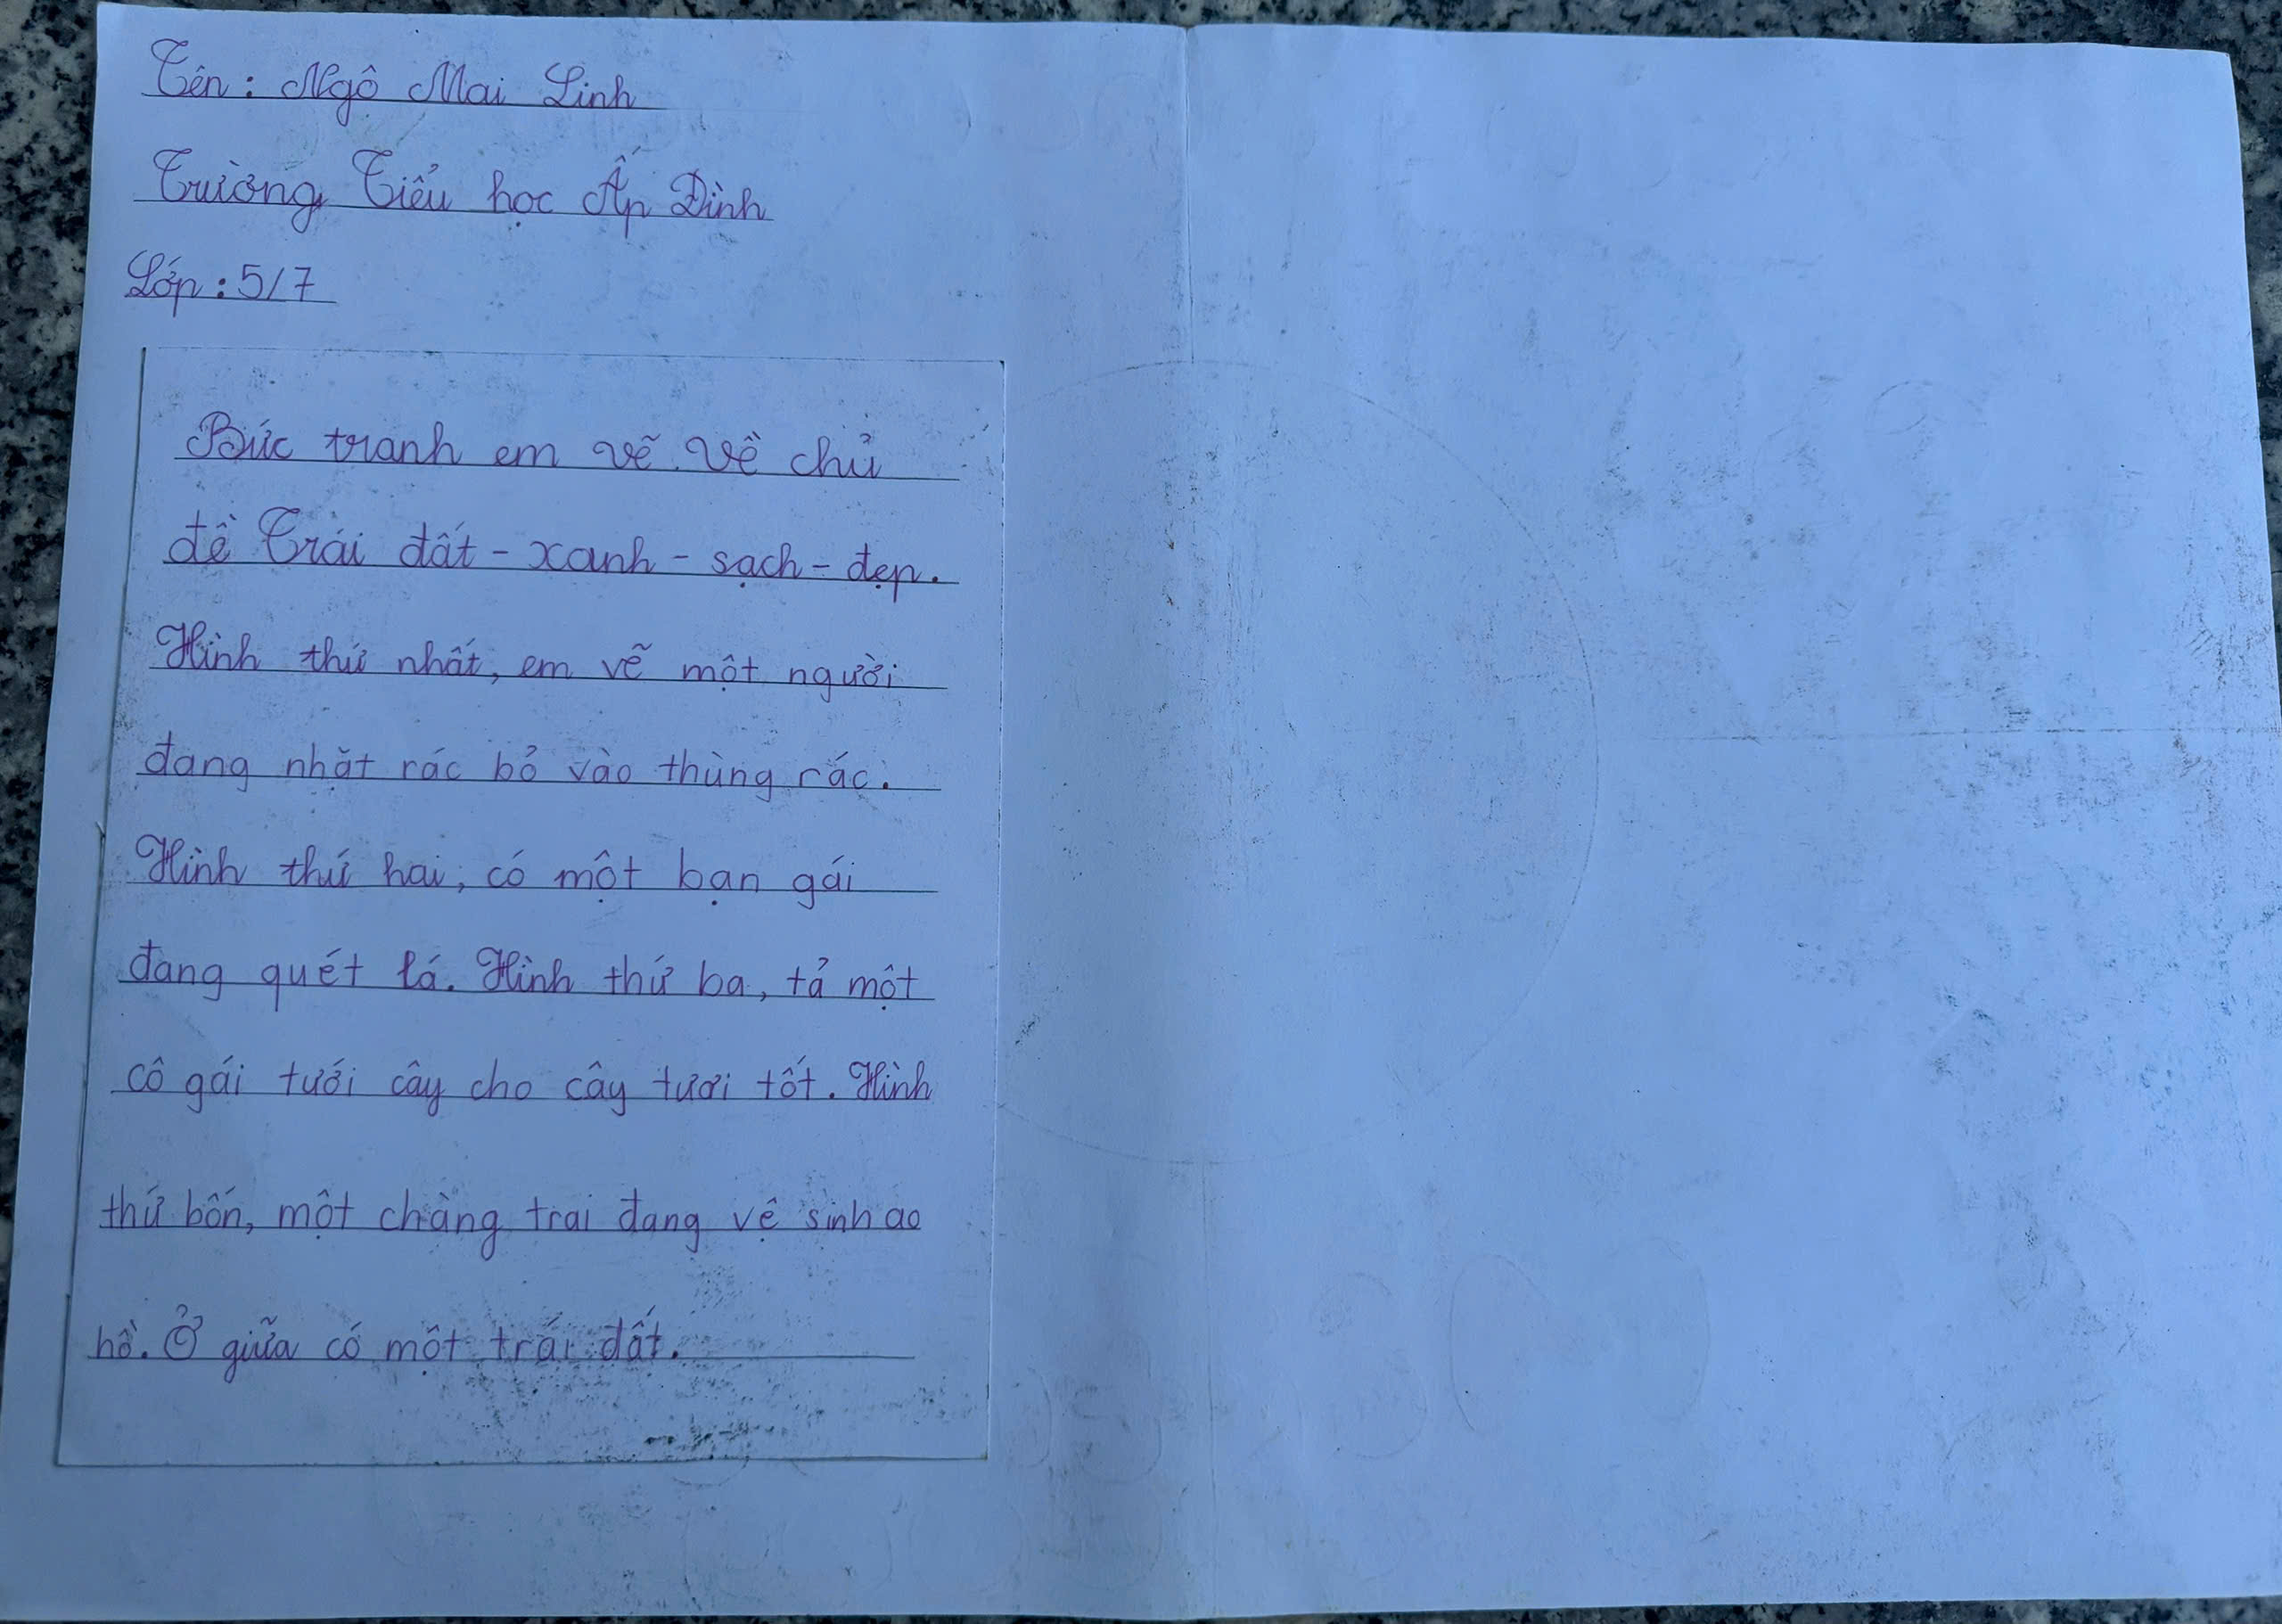 Tên: Ngô Mai Linh
Trường Tiểu học Ấp Đình
Lớp: 5/7
Bức tranh em vẽ về chủ
đề Trái đất - xanh - sạch - đẹp.
Hình thứ nhất, em vẽ một người
đang nhặt rác bỏ vào thùng rác.
Hình thứ hai, có một bạn gái
đang quét lá. Hình thứ ba, tả một
cô gái tưới cây cho cây tươi tốt. Hình
thứ bốn, một chàng trai đang vê sinh ao
hồ. Ở giữa có một trái đất.